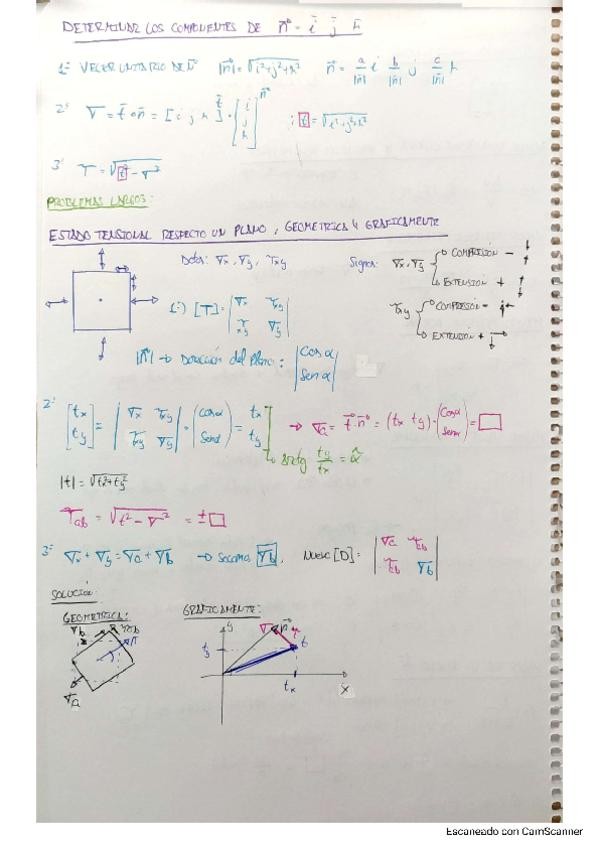 DETERMINAR LOS COMPONENTES DE n⃗ = i⃗ j⃗ k⃗
1º VECTOR UNITARIO DE n⃗ |n⃗| = √(i²+j²+k²) n⃗ = a/|n⃗| i b/|n⃗| j c/|n⃗| k
2º ∇ = t⃗ · n⃗ = [i j k] · [i j k] ; t = √(i²+j²+k²)
3º τ = √(t² - ∇²)
PROBLEMAS LARGOS:
ESTADO TENSIONAL RESPECTO UN PLANO, GEOMETRICA Y GRAFICAMENTE
Datos: ∇x, ∇y, τxy Signos: ∇x, ∇y COMPRESIÓN -
EXTENSION +
τxy COMPRESIÓN -
EXTENSIÓN +
1º) [T] = |∇x τxy τxy ∇y|
|n⃗| → Dirección del Plano: |Cosα Senα|
2º [tx ty] = |∇x τxy τxy ∇y| · (Cosα Senα) = tx ty → ∇a = t⃗ · n⃗ = (tx ty) · (Cosα Senα) = □
arctg ty/tx = α̂
|t| = √(tx²+ty²)
τab = √(t² - ∇²) = ± □
3º ∇x + ∇y = ∇a + ∇b → Sacamos ∇b, Nuevo [D] = |∇a τab τab ∇b|
SOLUCIÓN:
GEOMETRICA: GRAFICAMENTE:
∇b τab n
∇a
y ∇ n⃗ τ
ty t
tx x
Escaneado con CamScanner